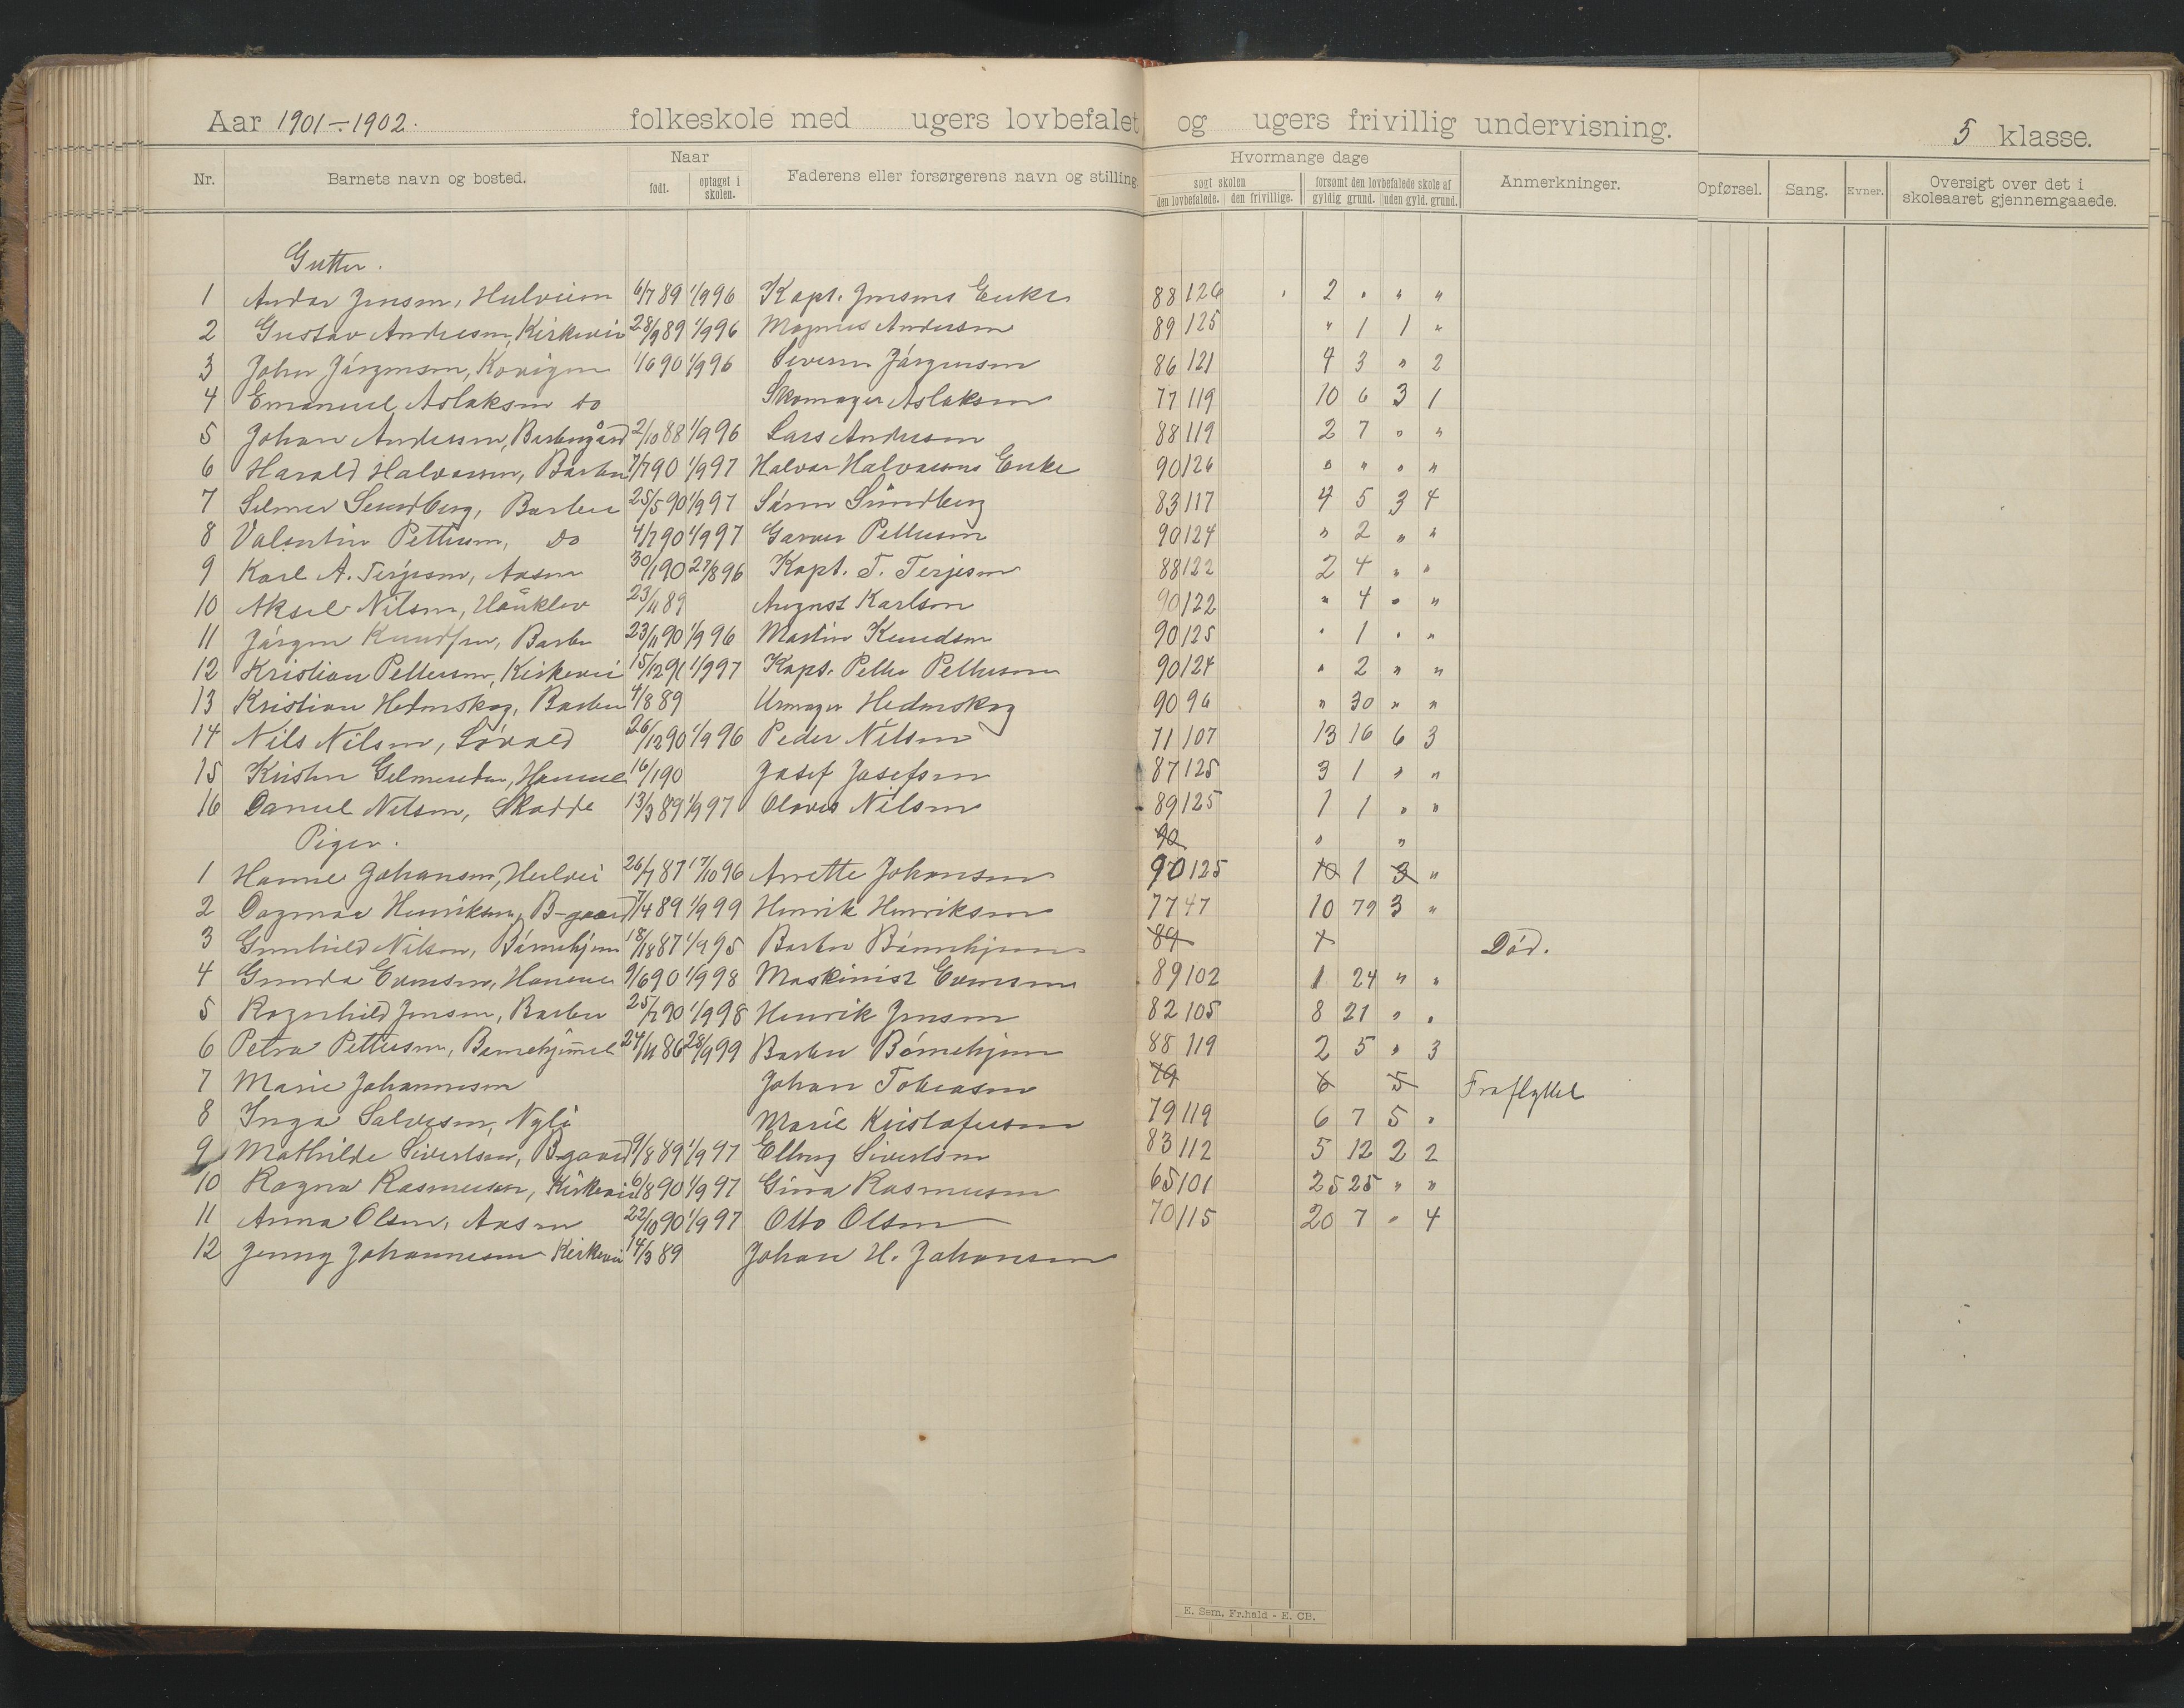 Aar 1901-1902. folkeskole med ugers lovbefalet og ugers frivillig undervisning. 5 klasse.
Nr. Barnets navn og bosted. Naar født. optaget i skolen. Faderens eller forsørgerens navn og stilling Hvormange dage søgt skolen den lovbefalede. den frivillige. forsømt den lovbefalede skole af gyldig grund. uden gyld. grund. Anmerkninger. Opførsel. Sang. Evner. Oversigt over det i skoleaaret gjennemgaaede.
Gutter.
1 Andor Jensen, 6/7 89 1/9 96 Kapt. Jensens Enke 88 126 2 " " "
2 Gustav Andresen, Kirkevei 28/9 89 1/9 96 Magnus Andersen 89 125 " 1 1 "
3 Johan Jörgensen, 1/6 90 1/9 96 Severin Jörgensen 86 121 4 3 " 2
4 Emanuel Aslaksen do Skomager Aslaksen 77 119 10 6 3 1
5 Johan Andersen, Barbugård 2/10 88 1/9 96 Lars Andersen 88 119 2 7 " "
6 Harald Halvorsen, Barbu 7/7 90 1/9 97 Halvor Halvorsens Enke 90 126 " " " "
7 Selmer Sundberg, Barbu 25/5 90 1/9 97 Sören Sundberg 83 117 4 5 3 4
8 Valentin Pettersen, do 4/7 90 1/9 97 Garver Pettersen 90 124 " 2 " "
9 Karl A. Terjesen, Aasen 30/1 90 27/8 96 Kapt. T. Terjesen 88 122 2 4 " "
10 Aksel Nilsen, 23/11 89 August Karlson 90 122 " 4 " "
11 Jörgen Knudsen, Barbu 23/11 90 1/9 96 Martin Knudsen 90 125 " 1 " "
12 Kristian Pettersen, Kirkevei 15/12 91 1/9 97 Kapt. Petter Pettersen 90 124 " 2 " "
13 Kristian Hedenskog, Barbu 4/8 89 Urmager Hedenskog 90 96 " 30 " "
14 Nils Nilsen, Sövold 26/12 90 1/9 96 Peder Nilsen 71 107 13 16 6 3
15 16/1 90 Josef Josefsen 87 125 3 1 " "
16 Daniel Nilsen, 13/3 89 1/9 97 Olaves Nilsen 89 125 1 1 " "
Piger. 90 " "
1 Hanne Johansen, 26/7 87 17/10 96 Anette Johansen 90 125 10 1 3 "
2 Dagmar Henriksen, B-gaard 7/4 89 1/9 99 Henrik Henriksen 77 47 10 79 3 "
3 Gunhild Nilsen, Börnehjem 87 1/9 95 Barbu Börnehjem 89 1 Död.
4 Gunda Evensen, 9/6 90 1/9 98 Maskinist Evensen 89 102 1 24 " "
5 Ragnhild Jensen, Barbu 25/7 90 1/9 98 Henrik Jensen 82 105 8 21 " "
6 Petra Pettersen, Barnehjemmet 24/11 86 28/9 99 Barbu Börnehjem 88 119 2 5 " 3
7 Marie Johannesen Johan Tobiasen 79 6 5 Fraflyttet
8 Inga Salvesen, Nyli Marie Kristofersen 79 119 6 7 5 "
9 Mathilde Sivertsen, B-gaard 9/8 89 1/9 97 Elling Sivertsen 83 112 5 12 2 2
10 Ragna Rasmussen, Kirkevei 6/8 90 1/9 97 Gina Rasmussen 65 101 25 25 " "
11 Anna Olsen, Aasen 22/10 90 1/9 97 Otto Olsen 70 115 20 7 " 4
12 Jenny Johannesen Kirkevei 14/3 89 Johan H. Johansen
E. Sem, Fr.hald - E. CB.